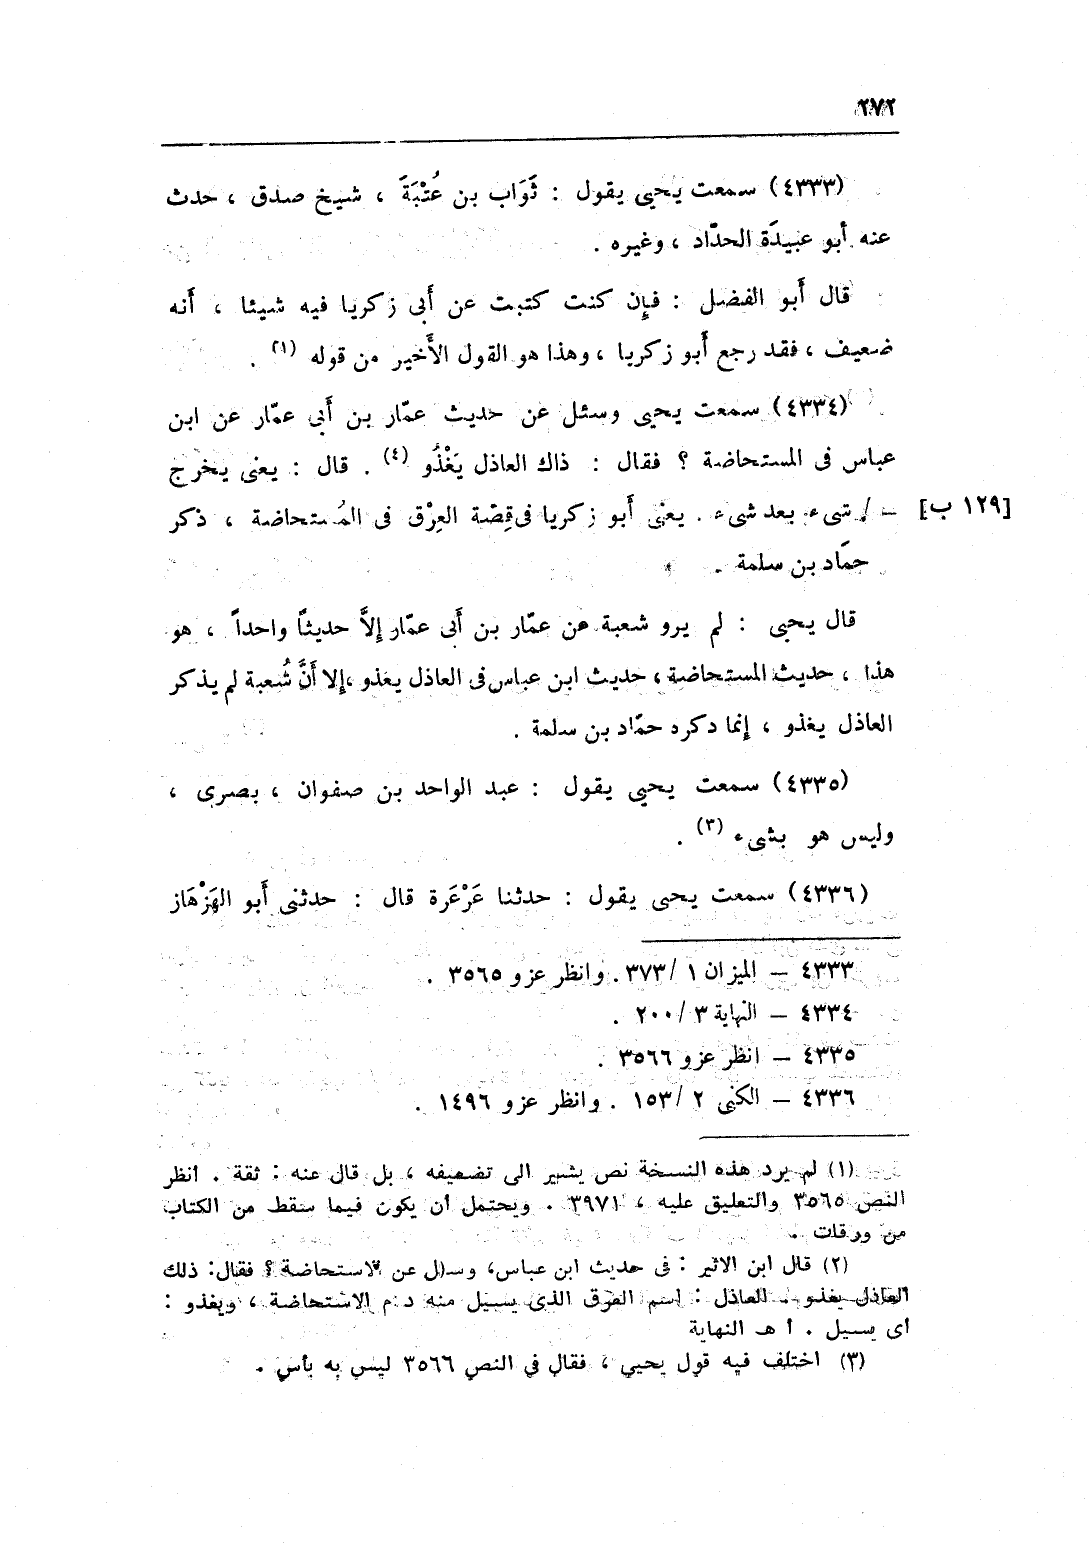 ٢٧٢
(٤٣٣٣) سمعت يحيى يقول : ثَوَاب بن عُتْبَةَ ، شيخ صدق ، حدث
عنه أبو عبيدَة الحدّاد ، وغيره .
قال أَبو الفضل : فإِن كنت كتبت عن أَبى زكريا فيه شيئا ، أَنه
ضعيف ، فقد رجع أَبو زكريا ، وهذا هو القول الأَخير من قوله (١) .
(٤٣٣٤) سمعت يحيى وسئل عن حديث عمّار بن أَبى عمّار عن ابن
عباس فى المستحاضة ؟ فقال : ذاك العاذل يَغْذُو (٤) . قال : يعنى يخرج
[١٢٩ ب] – / شىء بعد شىء . يعنى أَبو زكريا فى قِصّة العِرْق فى المُستحاضة ، ذكر
حمَاد بن سلمة .
قال يحيى : لم يرو شعبة عن عمّار بن أَبى عمّار إِلاَّ حديثاً واحداً ، هو
هذا ، حديث المستحاضة ، حديث ابن عباس فى العاذل يغذو ، إلا أَنَّ شُعبة لم يذكر
العاذل يغذو ، إِنما دكره حمّاد بن سلمة .
(٤٣٣٥) سمعت يحيى يقول : عبد الواحد بن صفوان ، بصرى ،
وليس هو بشىء (٣) .
(٤٣٣٦) سمعت يحيى يقول : حدثنا عَرْعَرة قال : حدثنى أَبو الهَزْهَاز
٤٣٣٣ – الميزان ١ /٣٧٣ . وانظر عزو ٣٥٦٥ .
٤٣٣٤ – النهاية ٣ /٢٠٠ .
٤٣٣٥ – انظر عزو ٣٥٦٦ .
٤٣٣٦ – الكنى ٢ /١٥٣ . وانظر عزو ١٤٩٦ .
(١) لم يرد هذه النسخة نص يشير الى تضعيفه ، بل قال عنه : ثقة . انظر
النص ٣٥٦٥ والتعليق عليه ، ٣٩٧١ . ويحتمل أن يكون فيما سقط من الكتاب
من ورقات .
(٢) قال ابن الاثير : فى حديث ابن عباس، وسئل عن الاستحاضة ؟ فقال: ذلك
العاذل يغذو . العاذل : اسم العرق الذى يسيل منه دم الاستحاضة ، ويغذو :
أى يسيل . أ هـ النهاية
(٣) اختلف فيه قول يحيي ، فقال في النص ٣٥٦٦ ليس به بأس .